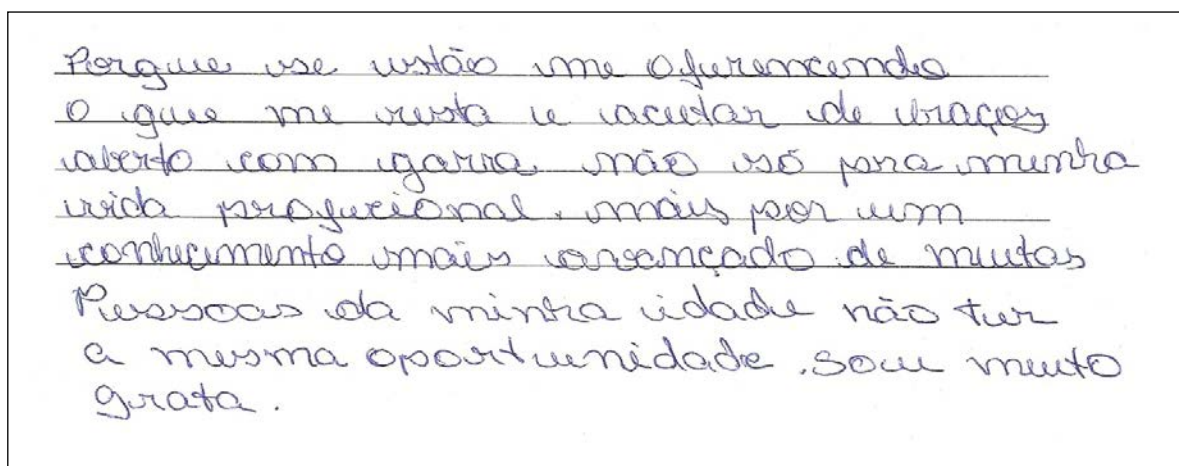 Porque se estão me ofurencendo
o que me resta e aceitar de braços
aberto com garra não só pra minha
vida profucional. mais por um
conhecimento mais avançado de muitas
Pessoas da minha idade não ter
a mesma oportunidade. sou muito
grata.